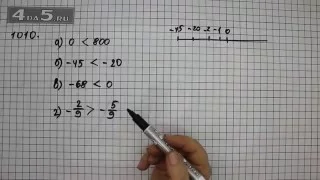 4ua5.ru
1010.
а) 0 < 800
б) -45 < -20
в) -68 < 0
г) -2/9 > -5/9
-45 -20 -2 -1 0